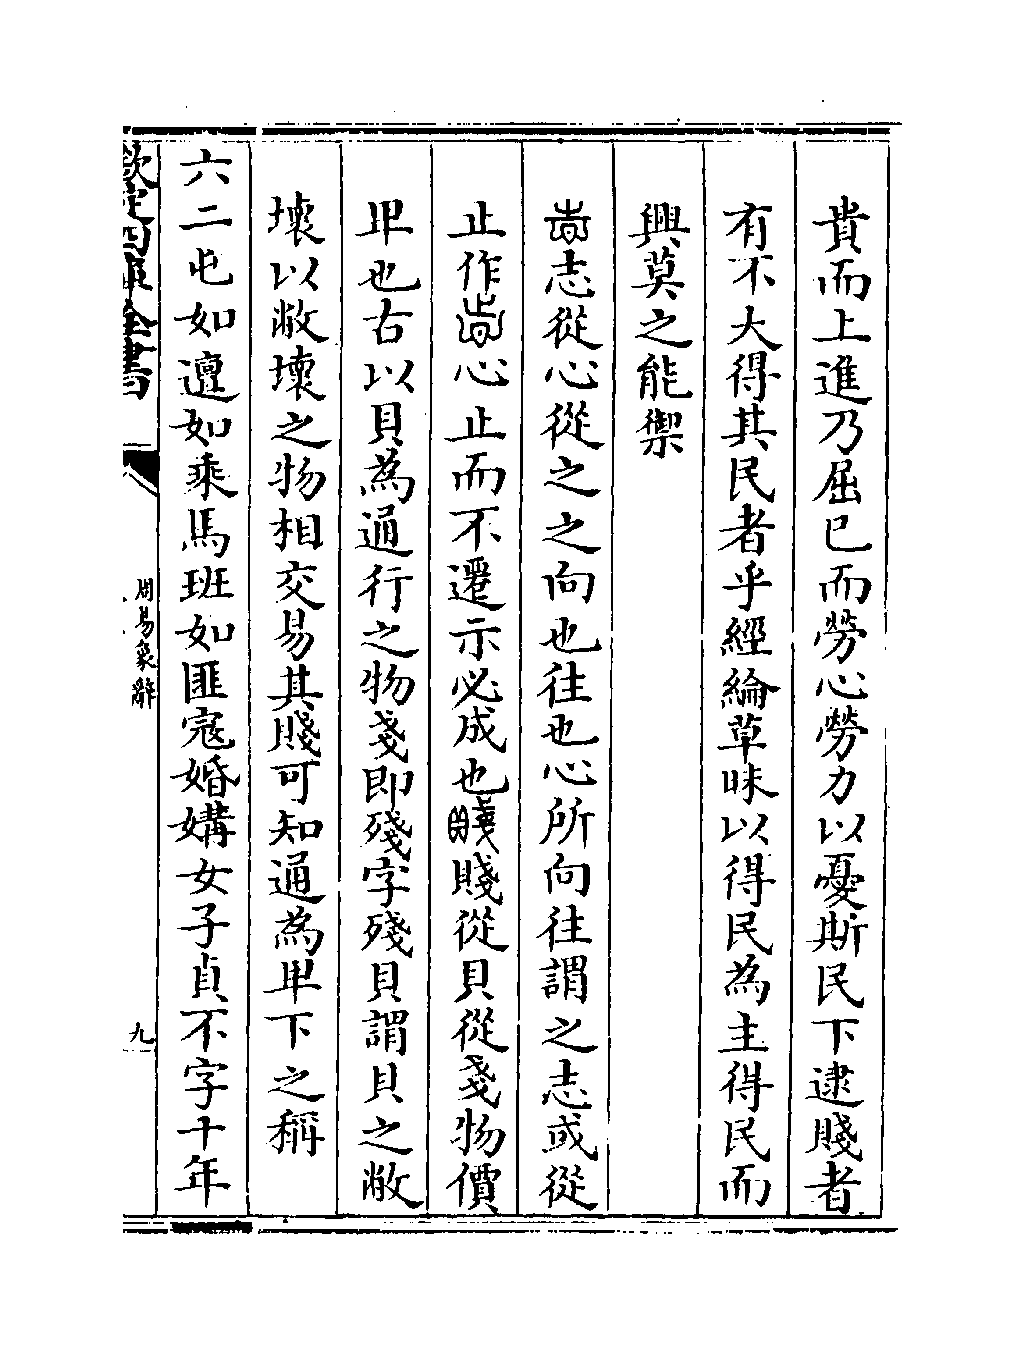 貴而上進乃屈已而勞心勞力以憂斯民下逮賤者
有不大得其民者乎經綸草昧以得民為主得民而
興莫之能禦
志從心從之之向也往也心所向往謂之志或從
止作心止而不遷示必成也賤從貝從戔物價
卑也古以貝為通行之物戔即殘字殘貝謂貝之敝
壞以敝壞之物相交易其賤可知通為卑下之稱
六二屯如邅如乘馬班如匪寇婚媾女子貞不字十年
欽定四庫全書
周易象辭
九